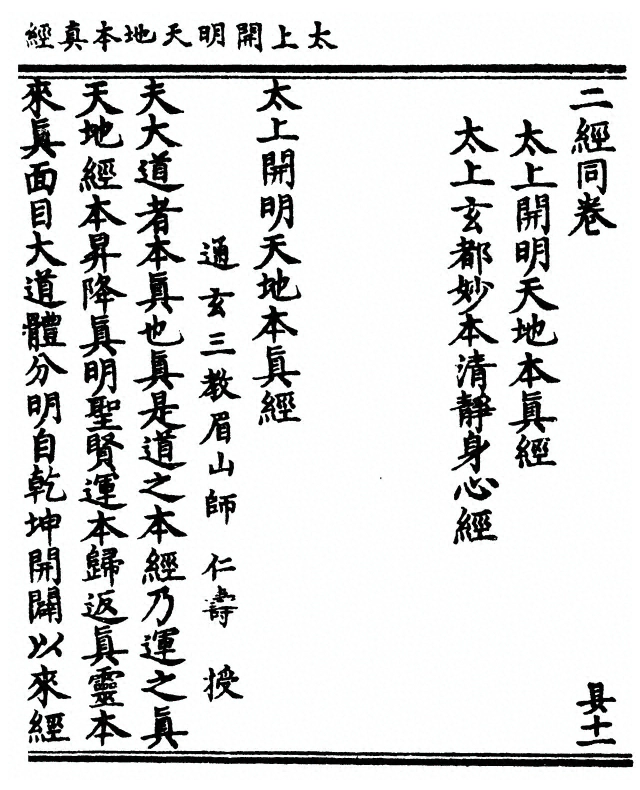 太上開明天地本真經
二經同卷
具十一
太上開明天地本眞經
太上玄都妙本清靜身心經
太上開明天地本眞經
通玄三教眉山師仁壽授
夫大道者本眞也眞是道之本經乃運之眞
天地經本昇降眞明聖賢運本歸返眞靈本
來眞面目大道體分明自乾坤開闢以來經